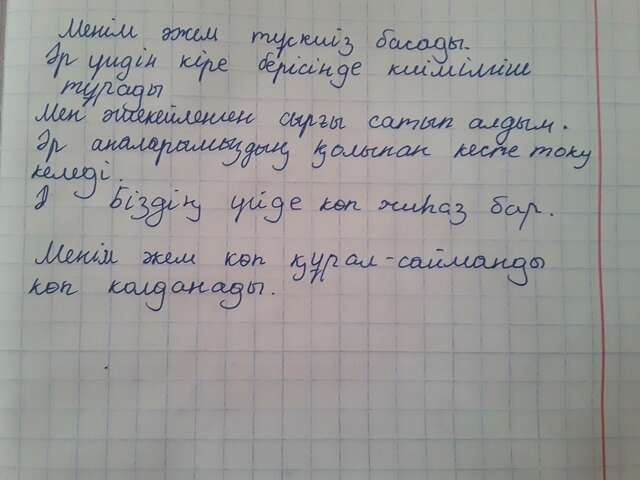 Менім әжем тускиіз басады.
Әр үидін кіре берісінде киімілгіш
тұрады
Мен әшекейлемен сырғы сатып алдым.
Әр аналарымыздың қолынан кесте тоқу
келеді.
Біздің үйде көп жиһаз бар.
Менім әкем көп құрал-сайманды
көп колданады.